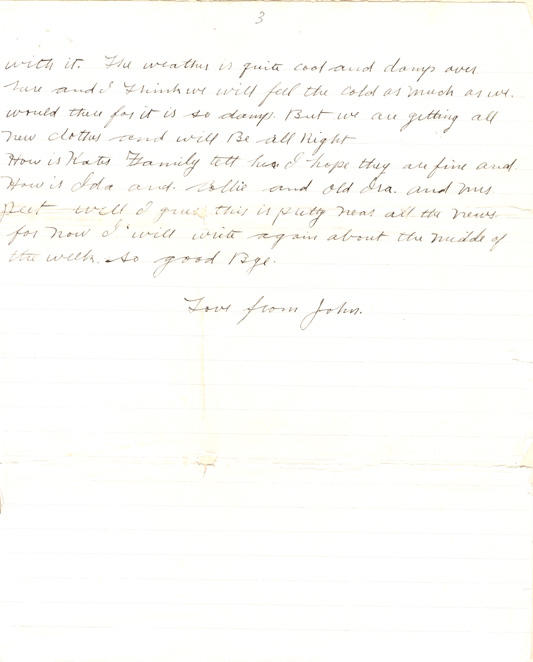 3
with it. The weather is quite cool and damp over
here and I think we will feel the cold as much as we
would there for it is so damp. But we are getting all
new clothes and will Be all Right
How is Kates Family tell her I hope they are fine and
How is Ida and Ollie and old Ira. and mrs
Peet well I gues this is pretty near all the news
for now I will write again about the middle of
the week. so good Bye.
Love from John.